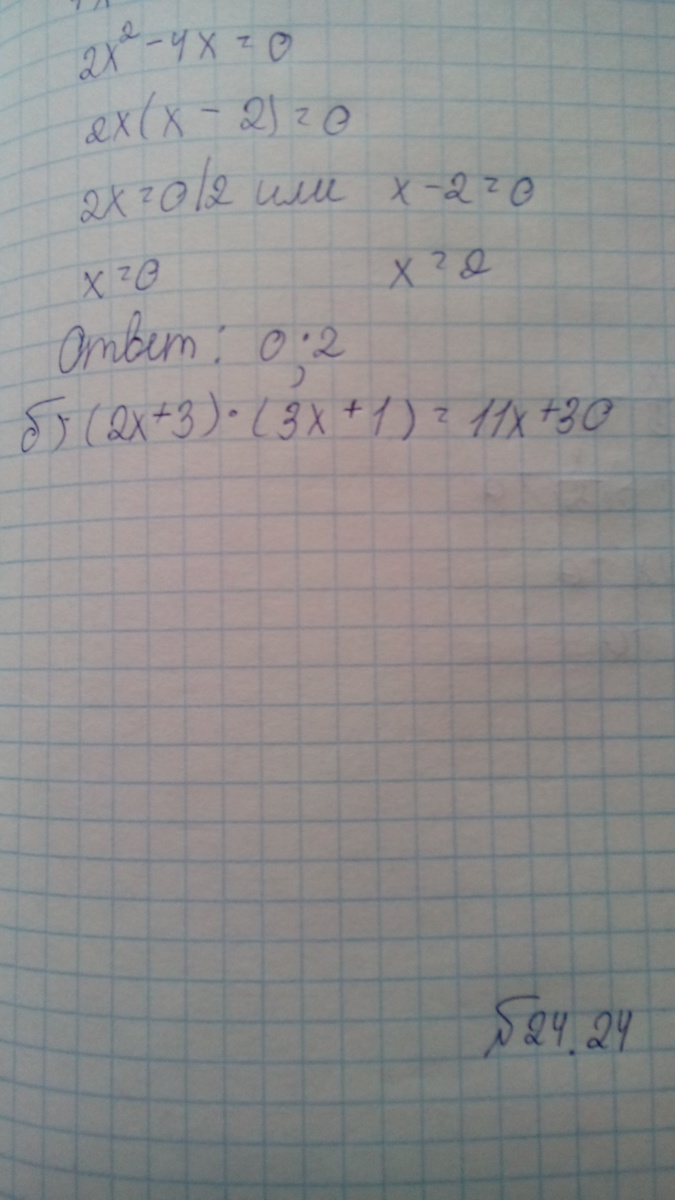 2x² - 4x = 0
2x(x - 2) = 0
2x = 0 |2 или x - 2 = 0
x = 0 x = 2
Ответ: 0; 2
б) (2x+3)·(3x+1) = 11x+30
№24.24